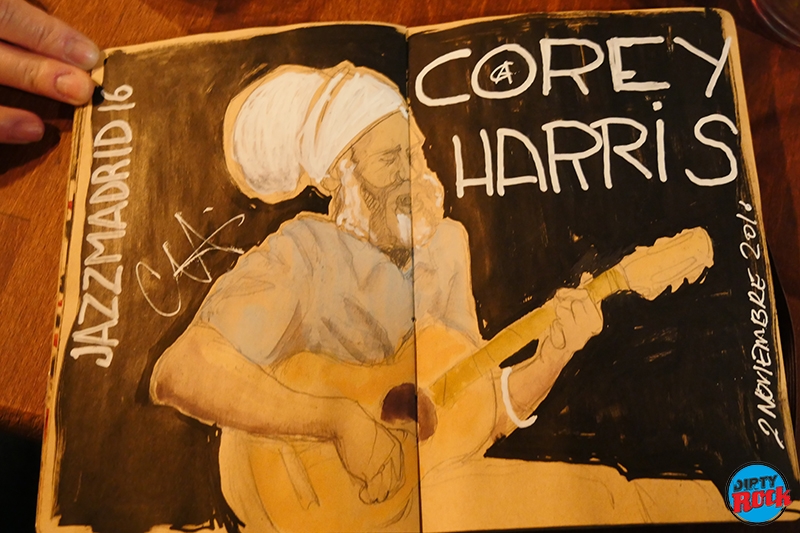 JAZZMADRID 16
COREY
HARRIS
2 NOVIEMBRE 2016
DIRTY
Rock